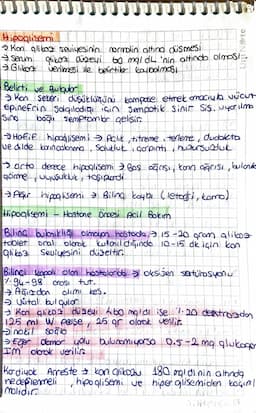 Hipoglisemi
→ Kan glikoz seviyesinin normalin altına düşmesi
→ Serum glikoz düzeyi 60 mg/dL'nin altında olması
→ Glikoz verilmesi ile belirtiler kaybolması
Belirti ve Bulgular
→ Kan şekeri düşüklüğünü kompanse etmek amacıyla vücut
epinefrin salgıladığı için sempatik sinir sis. uyarılma
sına bağlı semptomlar gelişir.
→ Hafif hipoglisemi → Açlık, titreme, terleme, dudakta
ve dilde karıncalanma, solukluk, çarpıntı, huzursuzluk
→ orta derece hipoglisemi → Baş ağrısı, karın ağrısı, bulanık
görme, uyuşukluk, taşikardi
→ Ağır hipoglisemi → Bilinç kaybı (letarji, koma)
Hipoglisemi - Hastane Öncesi Acil Bakım
Bilinç bulanıklığı olmayan hastada, → 15-20 gram glikoz
tablet oral olarak kullanıldığında 10-15 dk için kan
glikoz seviyesini düzeltir.
Bilinci kapalı olan hastalarda → oksijen satürasyonu
% 94-98 arası tut.
→ Ağızdan alımı kes.
→ Vital bulgular
→ Kan glikoz düzeyi <60 mg/dl ise % 20 dextrozdan
125 ml IV perşe, 25 gr olarak verilir
→ nakil sağla
→ Eğer damar yolu bulunamıyorsa 0.5-2 mg glukagon
IM olarak verilir.
Kardiyak Arreste → kan glikozu 180 mg/dl'nin altında
hedeflenmeli, hipoglisemi ve hiperglisemiden kaçınıl
malıdır.